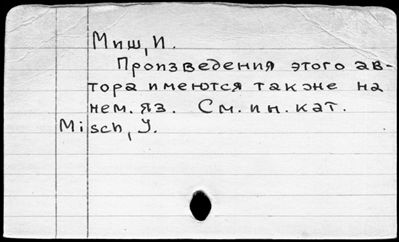 Миш, И.
Произведения этого ав-
тора имеются также на
нем. яз. См. ин. кат.
Misch, J.